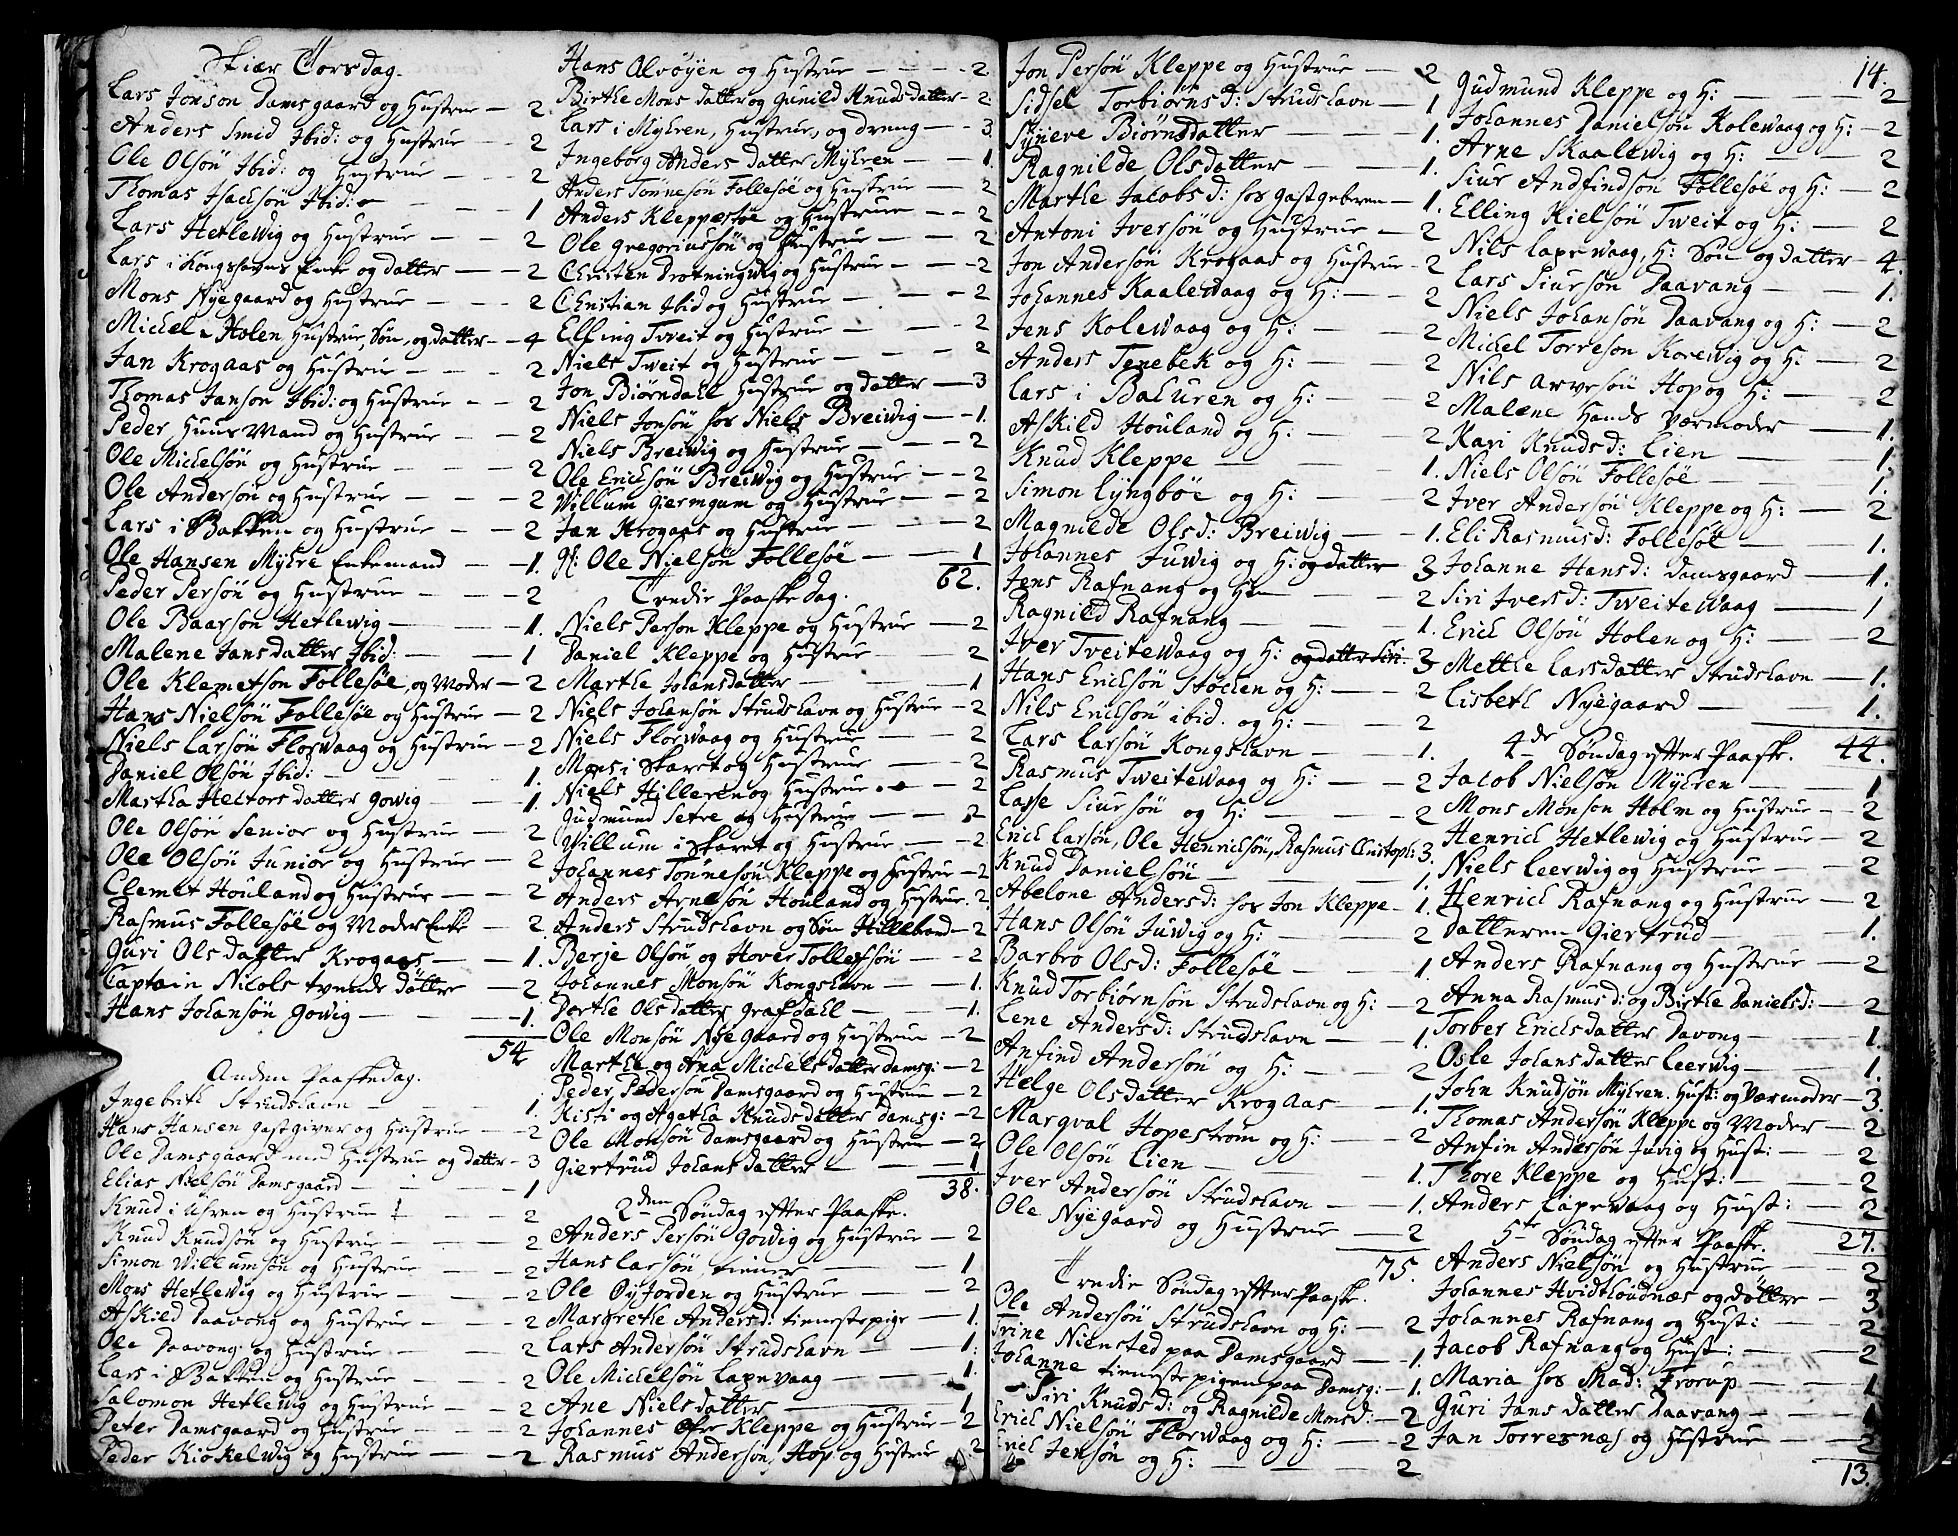 Skiær Torsdag.
Lars Jonson Damsgaard og Hustrue — 2
Anders Smid Ibid: og Hustrue — 2
Ole Olsön Ibid: og Hustrue — 2
Thomas Isachsön Ibid: — 1
Lars Hetlewig og Hustrue — 2
Lars i Kongshavns Enke og datter — 2
Mons Nyegaard og Hustrue — 2
Michel Holen Hustrue, Søn, og datter — 4
Jan Krogaas og Hustrue — 2
Thomas Janson Ibid: og Hustrue — 2
Peder Huus Mand og Hustrue — 2
Ole Michelsön og Hustrue — 2
Ole Andersön og Hustrue — 2
Lars i Bakken og Hustrue — 2
Ole Hansen Myhre Enkemand — 1.
Peder Persön og Hustrue — 2
Ole Baarson Hetlewig — 1.
Malene Jansdatter Ibid: — 1
Ole Klemetson Follesöe og Moder — 2
Hans Nielsön Follesöe og Hustrue — 2
Niels Larsön Florwaag og Hustrue — 2
Daniel Olsön Ibid: — 1.
Martha Hectors datter Gowig — 1.
Ole Olsön Senior og Hustrue — 2
Ole Olsön Junior og Hustrue — 2
Clemet Houland og Hustrue — 2
Rasmus Follesöe og Moder Enke — 2
Guri Olsdatter Krogaas — 1.
Captain Nicols tvende döttre — 2
Hans Johansön Gowig — 1.
54
Anden Paaskedag.
Ingebrith Strudshavn — 1.
Hans Hansen gastgiver og Hustrue — 2
Ole Damsgaard med Hustrue og datter — 3
Elias Nielsön Damsgaard — 1
Knud i Uhren og Hustrue — 2
Knud Knudsön og Hustrue — 2
Simon Willumsön og Hustrue — 2
Mons Hetlewig og Hustrue — 2
Askild Daavong og Hustrue — 2
Ole Daavong og Hustrue — 2
Lars i Bakken og Hustrue — 2
Salomon Hetlewig og Hustrue — 2
Peter Damsgaard og Hustrue — 2
Peder Kiökelwig og Hustrue — 2
Hans Alvöyen og Hustrue — 2
Birthe Mons datter og Gunild Knudsdatter — 2
Lars i Myhren, Hustrue, og dreng — 3.
Ingeborg Anders datter Myhren — 1.
Anders Tönnesön Follesöe og Hustrue — 2
Anders Kleppesöe og Hustrue — 2
Ole Gregoriussön og Hustrue — 2
Christen Drotningwig og Hustrue — 2
Christian Ibid og Hustrue — 2
Elling Tveit og Hustrue — 2
Niels Tweit og Hustrue — 2
Jon Biörndahl Hustrue og datter — 3
Niels Jonsön hos Niels Breiwig — 1.
Niels Breiwig og Hustrue — 2
Ole Ericksön Breiwig og Hustrue — 2
Willum Giermgum og Hustrue — 2
Jan Krogaas og Hustrue — 2
gl: Ole Nielsön Follesöe — 1
62.
Tredie Paaske dag.
Niels Person Kleppe og Hustrue — 2
Daniel Kleppe og Hustrue — 2
Marthe Johansdatter — 1
Niels Johansön Strudshavn og Hustrue — 2
Niels Florwaag og Hustrue — 2
Mons i Skaret og Hustrue — 2
Niels Hilleren og Hustrue — 2
Gudmund Setre og Hustrue — 2
Willum i Skaret og Hustrue — 2
Johannes Tönnesön Kleppe og Hustrue — 2
Anders Arnesön Houland og Hustrue — 2.
Anders Strudshavn og Sön Hillebord — 2
Berje Olsön og Hover Tollefsön — 2
Johannes Monsön Kongshavn — 1.
Dorthe Olsdatter Grafdahl — 1.
Ole Monsön Nyegaard og Hustrue — 2
Marthe og Ana Michelsdatter Damsg: — 2
Peder Pedersön Damsgaard og Hustrue — 2
Kisti og Agatha Knudsdatter Damsg: — 2
Ole Monsön Damsgaard og Hustrue — 2
Giertrud Johansdatter — 1
38.
2den Söndag efter Paaske.
Anders Persön Gowig og Hustrue — 2
Hans Larsön, tiener — 1
Ole Öyjorden og Hustrue — 2
Margrethe Andersd: tienestepige — 1.
Lars Andersön Strudshavn — 1.
Ole Michelsön Lapewaag — 1.
Ane Nielsdatter — 1
Johannes Kleppe og Hustrue — 2
Rasmus Andersön, Hop og Hustrue — 2
Jon Persön Kleppe og Hustrue — 2
Sidsel Torbiörnsd: Strudshavn — 1.
Synneve Biörnsdatter — 1.
Ragnilde Olsdatter — 1.
Marthe Jacobsd: hos gastgeberen — 1.
Antoni Iversön og Hustrue — 2
Jon Andersön Krogaas og Hustrue — 2
Johannes Kaalewaag og H: — 2
Jens Kolewaag og H: — 2
Anders Tenebek og H: — 2
Lars i Bachuren og H: — 2
Askild Houland og H: — 2
Knud Kleppe — 1.
Simon Lyngböe og H: — 2
Magnilde Olsd: Breiwig — 1.
Johannes Juwig og H: og datter — 3
Jens Rafnang og H: — 2
Ragnild Rafnang — 1.
Iver Tveitewaag og H: og datter Siri — 3
Hans Ericksön Stöcken og H: — 2
Nils Ericksön ibid. og H: — 2
Lars Larsön Kongshavn — 1.
Rasmus Tweitewaag og H: — 2
Lasse Siursön og H: — 2
Erick Larsön, Ole Henricksön, Rasmus Christoph: 3.
Knud Danielsön — 1.
Abelone Andersd: hos Jon Kleppe — 1.
Hans Olsön Juwig og H: — 2
Barbro Olsd: Follesöe — 1.
Knud Torbiörnsön Strudshavn og H: — 2
Lene Andersd: Strudshavn — 1.
Anfind Andersön og H: — 2
Helge Olsdatter Krogaas — 1.
Margval Hopeström og H: — 2
Ole Olsön Lien — 1.
Iver Andersön Strudshavn — 1.
Ole Nyegaard og Hustrue — 2
75.
Tredie Söndag efter Paaske.
Ole Andersön Strudshavn og H: — 2
Trine Niensted paa Damsgaard — 1.
Johanne tienestepigen paa Damsg: — 1.
Siri Knudsd: og Ragnilde Monsd: — 2
Erick Nielsön Florwaag og H: — 2
Erick Jensön og H: — 2
14.
Gudmund Kleppe og H: — 2
Johannes Danielsön Kolewaag og H: — 2
Arne Skaalewig og H: — 2
Siur Andfindsön Follesöe og H: — 2
Elling Nielsön Tweit og H: — 2
Nils Lapewaag, H: Sön og datter — 4.
Lars Siursön Daavang — 1.
Niels Johansön Daavang og H: — 2
Michel Torreson Korewig og H: — 2
Nils Arvesön Hop og H: — 2
Malene Hands Værmoder — 1.
Kari Knudsd: Lien — 1.
Niels Olsön Follesöe — 1.
Iver Andersön Kleppe og H: — 2
Eli Rasmusd: Follesöe — 1.
Johanne Hansd: Damsgaard — 1.
Siri Iversd: Tweitewaag — 1
Erick Olsön Holen og H: — 2
Mette Larsdatter Strudshavn — 1.
Lisbeth Nyegaard — 1.
44.
4de Söndag efter Paaske.
Jacob Nielsön Myhren — 1
Mons Monson Holm og Hustrue — 2
Henrick Hetlewig og Hustrue — 2
Niels Leerwig og Hustrue — 2
Henrick Rafnang og Hustrue — 2
Datteren Giertrud — 1.
Anders Rafnang og Hustrue — 2
Anna Rasmusd: og Birthe Danielsd: — 2
Torber Ericksdatter Davong — 1.
Osle Johansdatter Leerwig — 1.
John Knudsön Myhren, Hust: og Værmoder — 3.
Thomas Andersön Kleppe og Moder — 2
Anfin Andersön Juvig og Hust: — 2
Thore Kleppe og Hust: — 2
Anders Lapewaag og Hust: — 2
27.
5te Söndag efter Paaske.
Anders Nielsön og Hustrue — 2
Johannes Hvidthoudnæs og döttre — 3
Johannes Rafnang og Hust: — 2
Jacob Rafnang og Hust: — 2
Maria hos Mad: Frorup — 1
Guri Jansdatter Daavang — 1
Jan Torresnæs og Hustrue — 2
13.